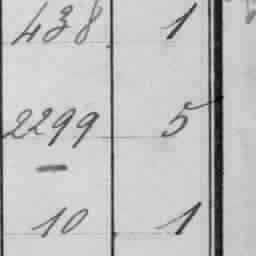 438 1
2299 5
—
10 1